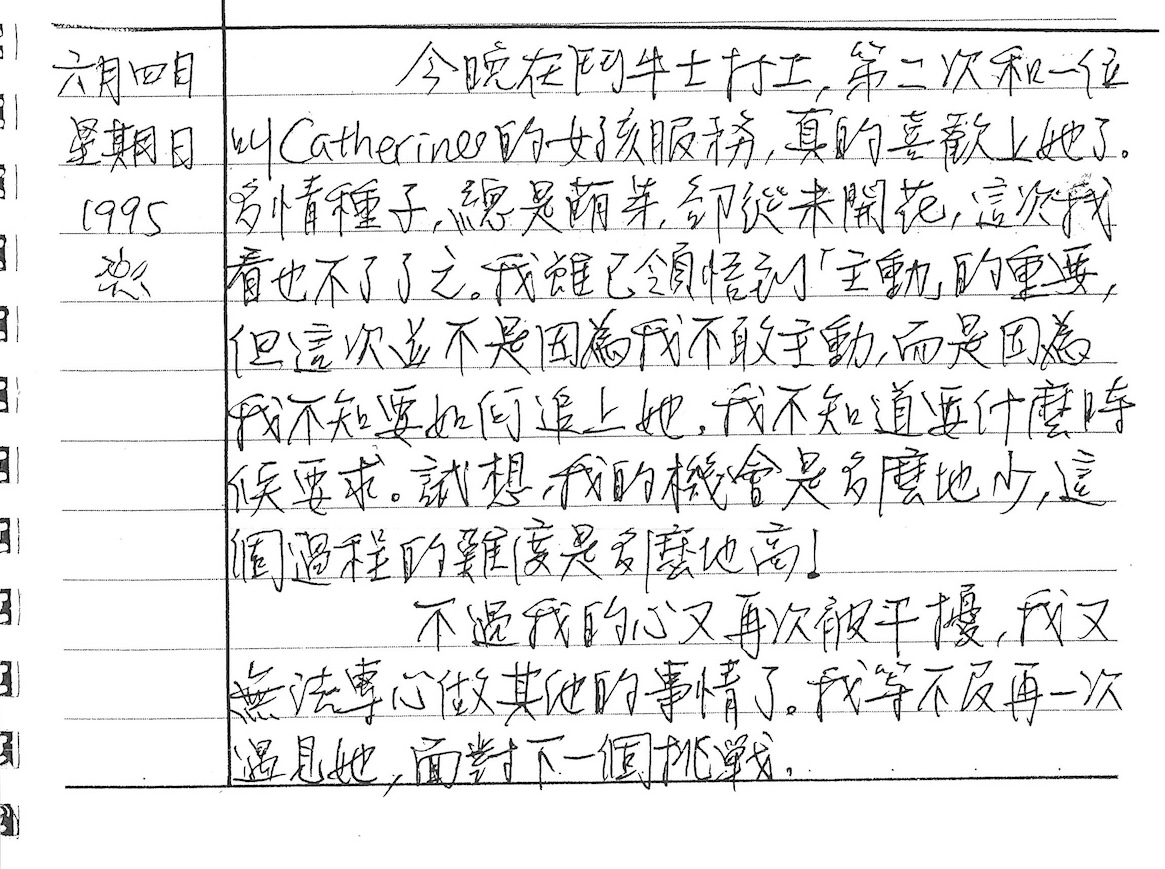 六月四日
星期日
1995
今晚在鬥牛士打工,第二次和一位
叫Catherine的女孩服務,真的喜歡上她了。
多情種子,總是萌芽,卻從未開花,這次我
看也不了了之。我雖已領悟到「主動」的重要,
但這次並不是因為我不敢主動,而是因為
我不知要如何追上她,我不知道要什麼時
候要求。試想,我的機會是多麼地少,這
個過程的難度是多麼地高!
不過我的心又再次被干擾,我又
無法專心做其他的事情了。我等不及再一次
遇見她,面對下一個挑戰.